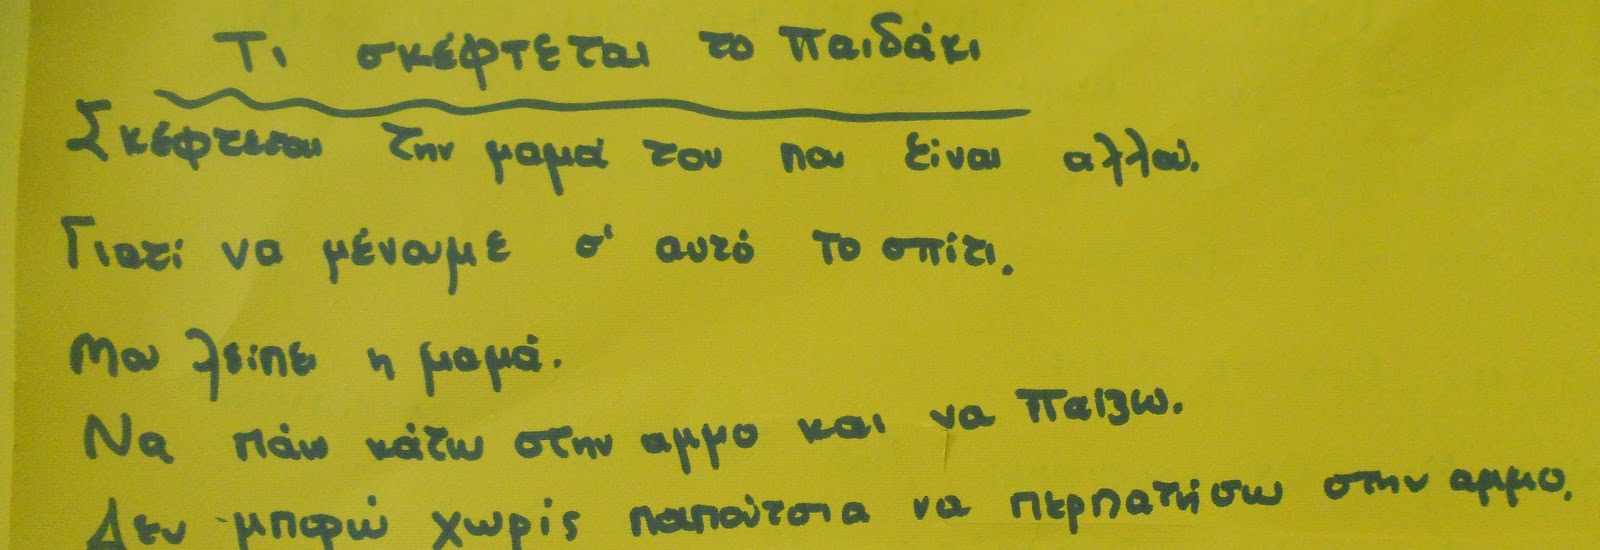 Τι σκέφτεται το παιδάκι
Σκέφτεται την μαμά του που είναι αλλού.
Γιατί να μένουμε σ' αυτό το σπίτι.
Μου λείπει η μαμά.
Να πάω κάτω στην αμμο και να παίξω.
Δεν μπορώ χωρίς παπούτσια να περπατήσω στην αμμο.